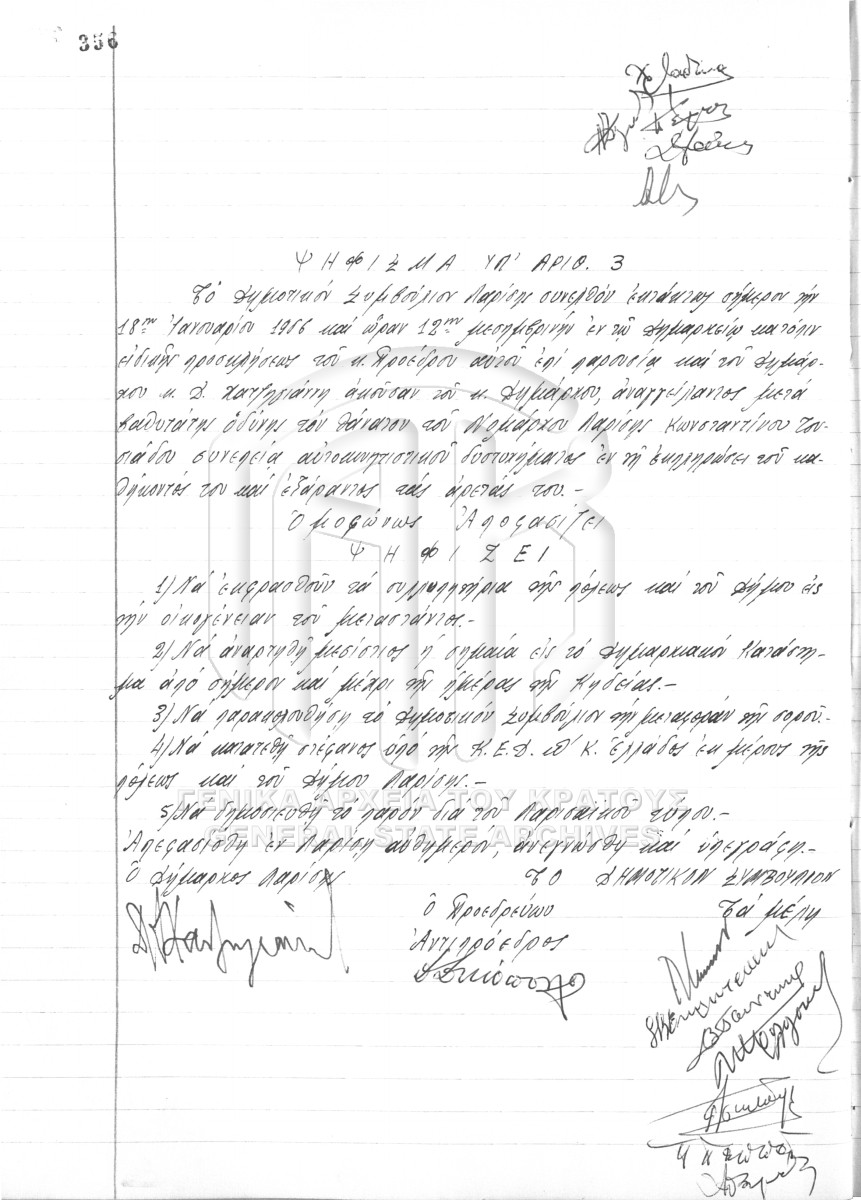 356
ΨΗΦΙΣΜΑ ΥΠ' ΑΡΙΘ. 3
Τό Δημοτικόν Συμβούλιον Λαρίσης συνελθόν ἐκτάκτως σήμερον τήν
18ην Ἰανουαρίου 1966 καί ὥραν 12ην μεσημβρινήν ἐν τῷ Δημαρχείῳ κατόπιν
εἰδικῆς προσκλήσεως τοῦ κ. Προέδρου αὐτοῦ ἐπί παρουσίᾳ καί τοῦ Δημάρ-
χου κ. Δ. Χατζηγιάννη ἀκοῦσαν τοῦ κ. Δημάρχου, ἀναγγείλαντος μετά
βαθυτάτης ὀδύνης τόν θάνατον τοῦ Νομάρχου Λαρίσης Κωνσταντίνου Του-
σιάδου συνεπείᾳ αὐτοκινητιστικοῦ δυστυχήματος ἐν τῇ ἐκπληρώσει τοῦ κα-
θήκοντός του καί ἐξάραντος τάς ἀρετάς του.-
Ὁμοφώνως Ἀποφασίζει
ΨΗΦΙΖΕΙ
1) Νά ἐκφρασθοῦν τά συλλυπητήρια τῆς πόλεως καί τοῦ Δήμου εἰς
τήν οἰκογένειαν τοῦ μεταστάντος.-
2) Νά ἀναρτηθῇ μεσίστιος ἡ σημαία εἰς τό Δημαρχιακόν Κατάστη-
μα ἀπό σήμερον καί μέχρι τῆς ἡμέρας τῆς Κηδείας.-
3) Νά παρακολουθήσῃ τό Δημοτικόν Συμβούλιον τήν μεταφοράν τῆς σοροῦ.-
4) Νά κατατεθῇ στέφανος ὑπό τῆς Κ.Ε.Δ. κ' Κ. Ἑλλάδος ἐκ μέρους τῆς
πόλεως καί τοῦ Δήμου Λαρίσης.-
ΓΕΝΙΚΑ ΑΡΧΕΙΑ ΤΟΥ ΚΡΑΤΟΥΣ
5) Νά δημοσιευθῇ τό παρόν διά τοῦ Λαρισαϊκοῦ τύπου.-
GENERAL STATE ARCHIVES
Ἀπεφασίσθη ἐν Λαρίσῃ αὐθημερόν, ἀνεγνώσθη καί ὑπεγράφη.-
Ὁ Δήμαρχος Λαρίσης ΤΟ ΔΗΜΟΤΙΚΟΝ ΣΥΜΒΟΥΛΙΟΝ
Ὁ Προεδρεύων Τά μέλη
Ἀντιπρόεδρος